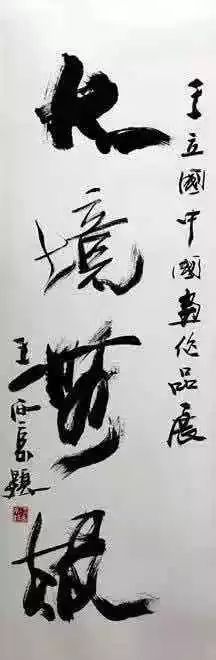 立國中國畫作品展
化境無垠
王 題